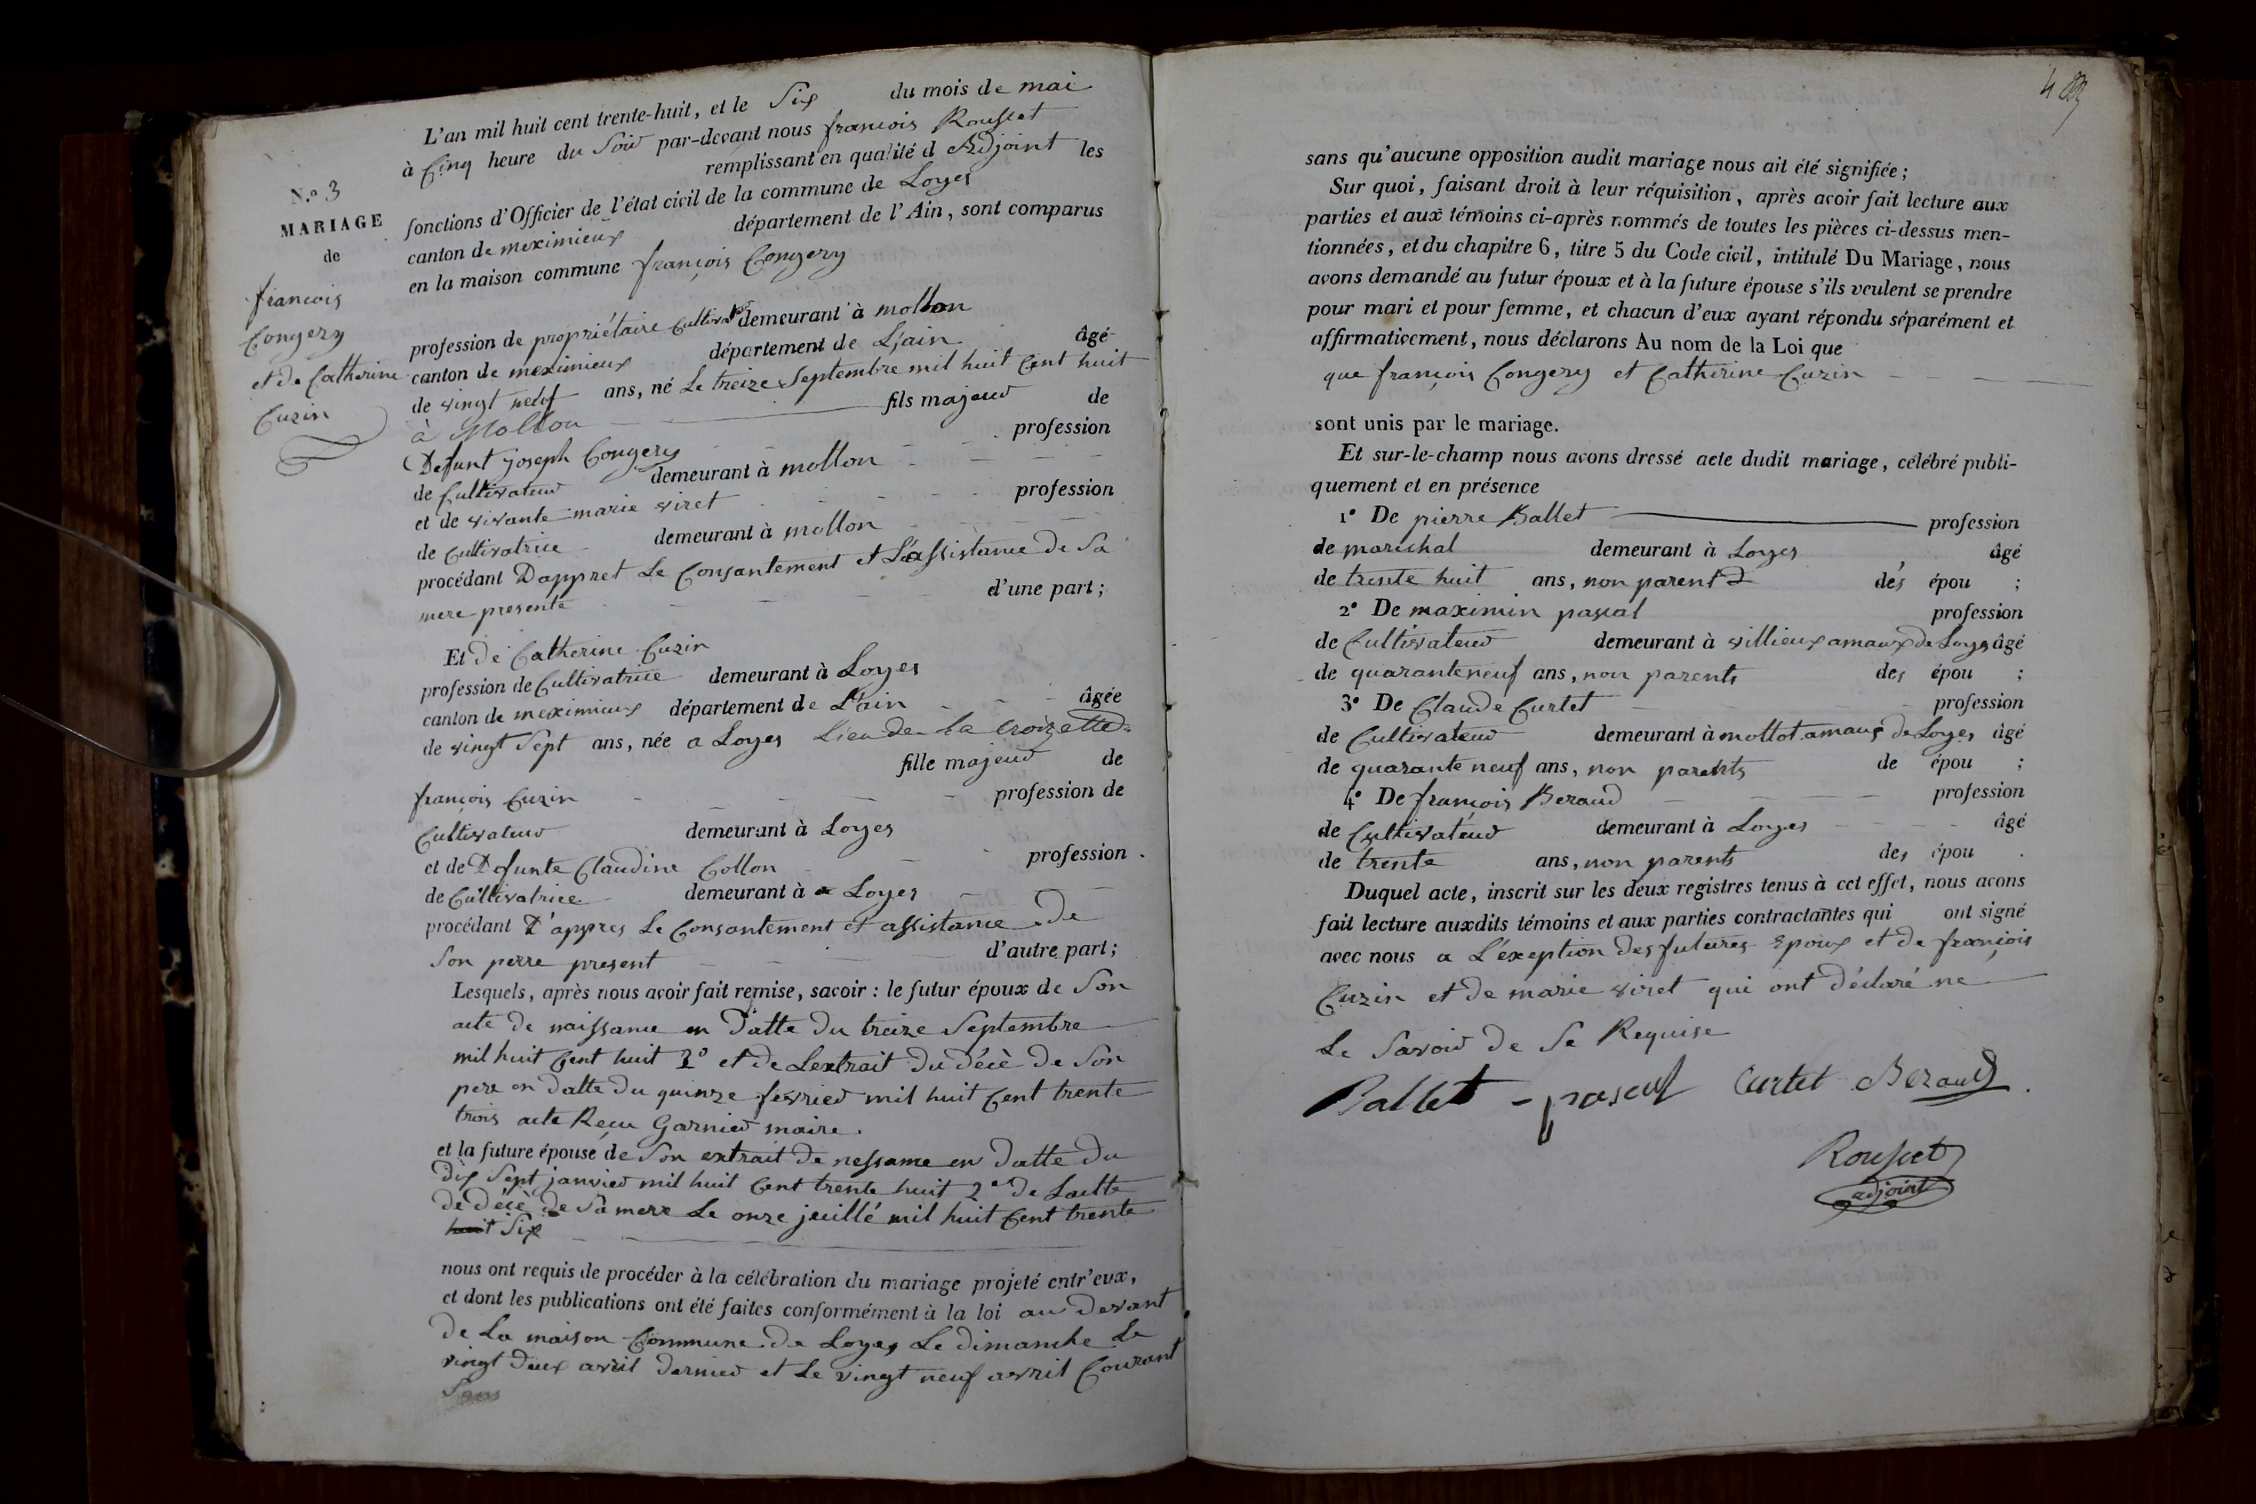 N.o 3
MARIAGE
de
francois
Congery
et de Catherine
Cuzin
L'an mil huit cent trente-huit, et le Six du mois de mai
à Cinq heure du Soir par-devant nous francois Rousset
remplissant en qualité d Adjoint les
fonctions d'Officier de l'état civil de la commune de Loyes
canton de meximieux département de l'Ain, sont comparus
en la maison commune françois Congery
profession de propriétaire Cultivat demeurant à mollon
canton de meximieux département de L'ain âgé
de vingt neuf ans, né Le treize Septembre mil huit Cent huit
à Mollon fils majeur de
Defunt joseph Congery profession
de Cultivateur demeurant à mollon
et de vivante marie viret profession
de Cultivatrice demeurant à mollon
procédant D'appret Le Consantement et L'assistance De Sa
mere presente d'une part;
Et de Catherine Cuzin
profession de Cultivatrice demeurant à Loyes
canton de meximieux département de L'ain âgée
de vingt Sept ans, née a Loyes Lieu de La Croizette
fille majeur de
françois Cuzin profession de
Cultivateur demeurant à Loyes
et de Defunte Claudine Collon profession
de Cultivatrice demeurant à a Loyes
procédant D'appres Le Consantement et assistance De
Son perre present d'autre part;
Lesquels, après nous avoir fait remise, savoir : le futur époux de Son
acte de naissance en Datte Du treize Septembre
mil huit Cent huit 2o et de Lextrait Du Décè De Son
pere en Datte Du quinze fevrier mil huit Cent trente
trois acte Recu Garnier maire.
et la future épouse de Son extrait De nessance en Datte Du
Dix Sept janvier mil huit Cent trente huit 2e De Laette
de décè De Sa mere Le onze jeuillé mil huit Cent trente
huit Six
nous ont requis de procéder à la célébration du mariage projeté entr'eux,
et dont les publications ont été faites conformément à la loi au Devant
De La maison Commune De Loyes Le dimanche Le
vingt Deux avril Dernier et Le vingt neuf avril Courant
Sans
4
sans qu'aucune opposition audit mariage nous ait été signifiée;
Sur quoi, faisant droit à leur réquisition, après avoir fait lecture aux
parties et aux témoins ci-après nommés de toutes les pièces ci-dessus men-
tionnées, et du chapitre 6, titre 5 du Code civil, intitulé Du Mariage, nous
avons demandé au futur époux et à la future épouse s'ils veulent se prendre
pour mari et pour femme, et chacun d'eux ayant répondu séparément et
affirmativement, nous déclarons Au nom de la Loi que
que françois Congery et Catherine Cuzin
sont unis par le mariage.
Et sur-le-champ nous avons dressé acte dudit mariage, célébré publi-
quement et en présence
1o De pierre Ballet profession
de marechal demeurant à Loyes âgé
de trente huit ans, non parent des épou ;
2o De maximin pascal profession
de Cultivateur demeurant à villieux amaux de Loyes âgé
de quaranteneuf ans, non parents des épou ;
3o De Claude Curtet profession
de Cultivateur demeurant à mottot amaux De Loyes âgé
de quarante neuf ans, non parents de épou ;
4o De françois Beraud profession
de Cultivateur demeurant à Loyes âgé
de trente ans, non parents des épou .
Duquel acte, inscrit sur les deux registres tenus à cet effet, nous avons
fait lecture auxdits témoins et aux parties contractantes qui ont signé
avec nous a L'éxeption Des futures Epoux et De françois
Cuzin et De marie viret qui ont Déclaré ne
Le Savoir De Se Requise
Ballet pascal Curtet Beraud
Rousset
adjoint